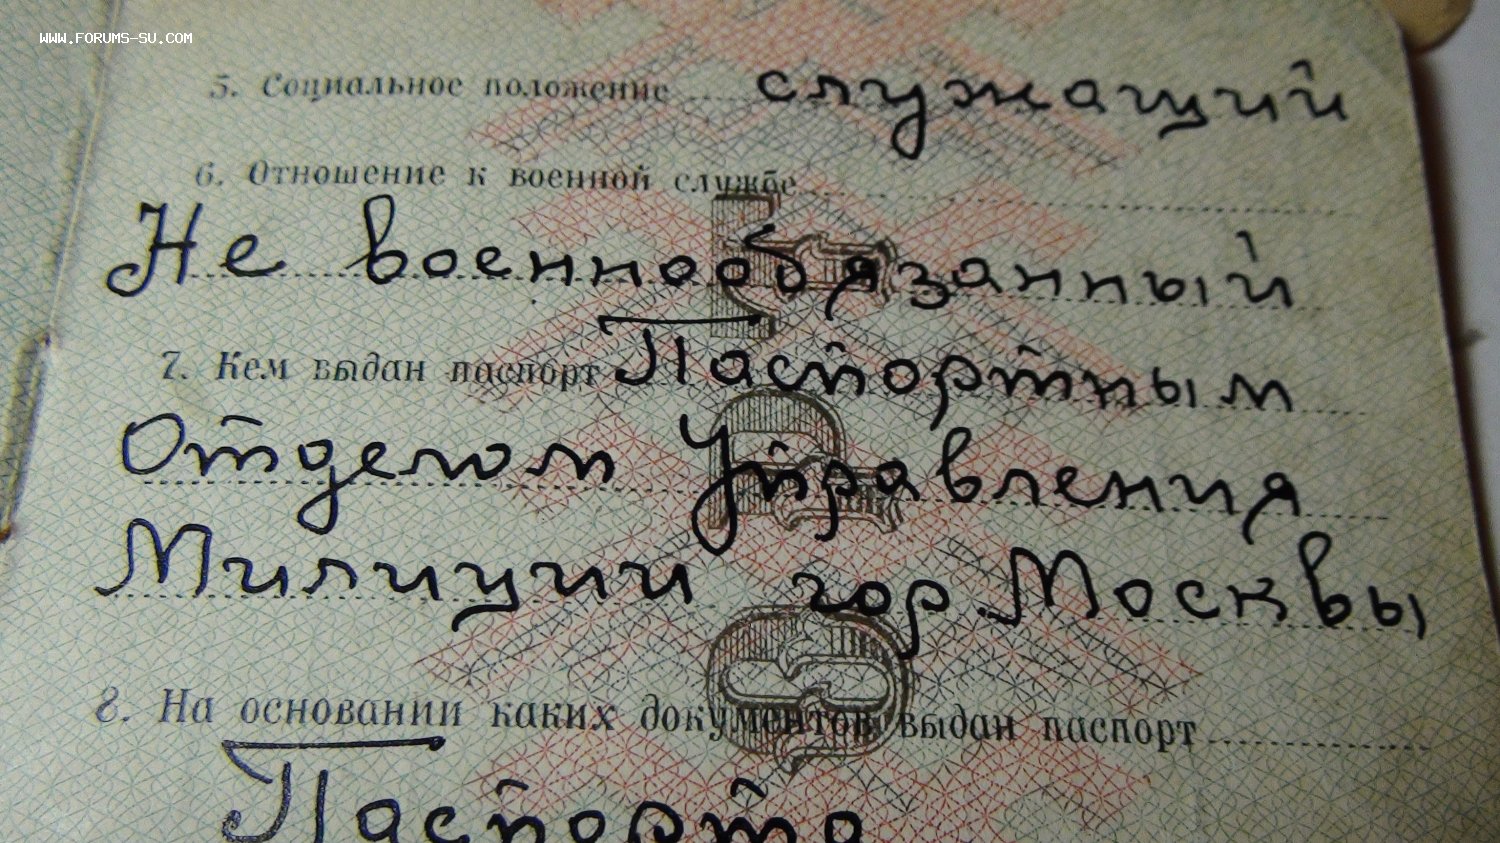 WWW.FORUMS-SU.COM
5. Социальное положение служащий
6. Отношение к военной службе
Не военнообязанный
7. Кем выдан паспорт Паспортным
Отделом Управления
Милиции гор Москвы
8. На основании каких документов выдан паспорт
Паспорта